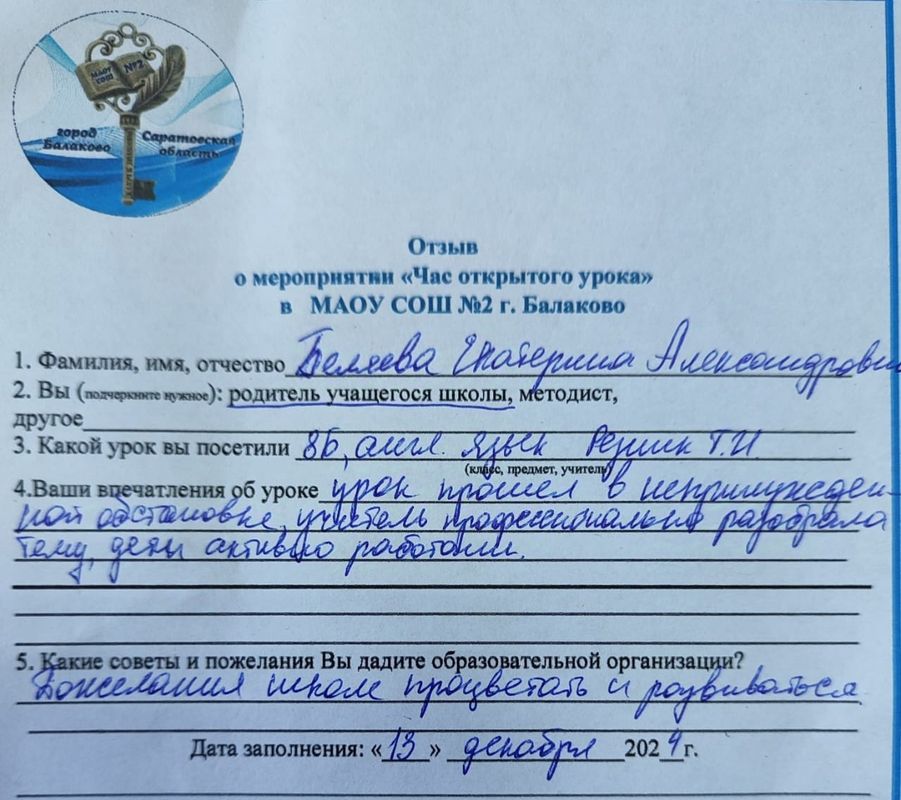 МАОУ СОШ №2
город Балаково
Саратовская область
Отзыв
о мероприятии «Час открытого урока»
в МАОУ СОШ №2 г. Балаково
1. Фамилия, имя, отчество Беляева Екатерина Александровн
2. Вы (подчеркните нужное): родитель учащегося школы, методист,
другое
3. Какой урок вы посетили 8Б, англ. язык Резник Т.И
(класс, предмет, учитель)
4.Ваши впечатления об уроке урок прошел в непринужден-
ной обстановке, учитель профессионально разобрала
тему, дети активно работали.
5. Какие советы и пожелания Вы дадите образовательной организации?
Пожелания школе процветать и развиваться
Дата заполнения: «13» декабря 2024г.